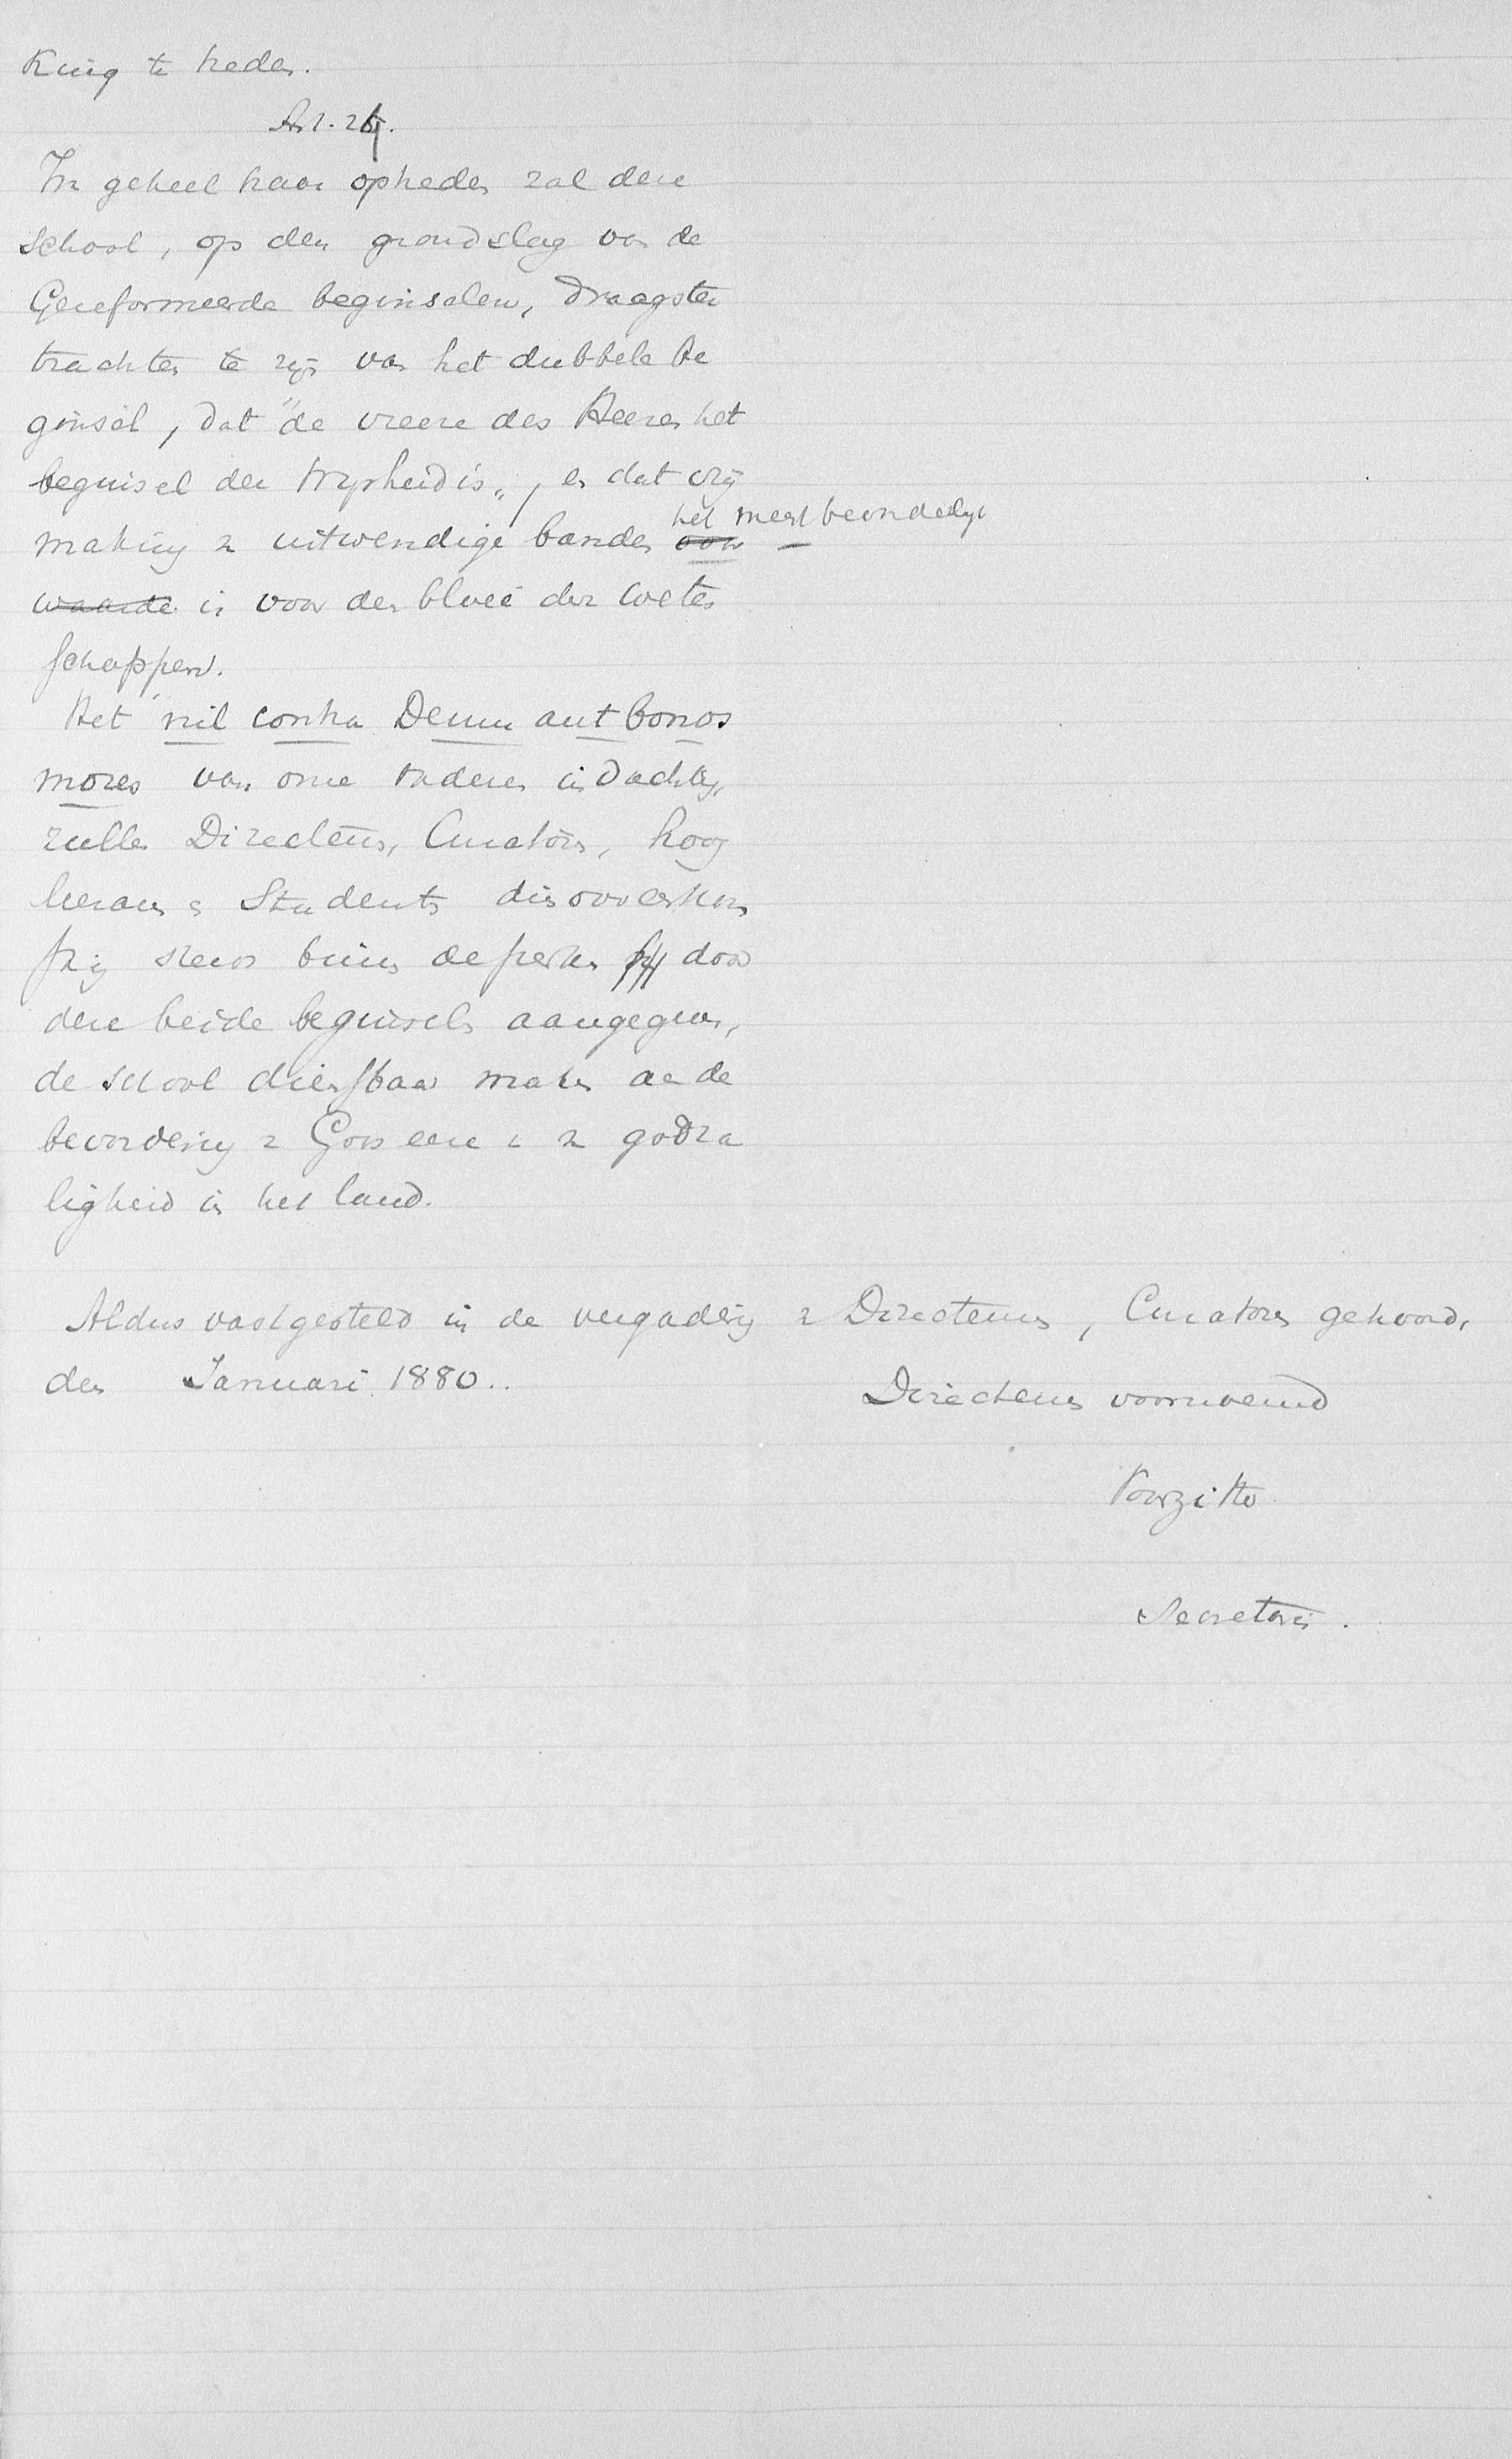 king te treden.
Art. 24.
In geheel haar optreden zal deze
school, op den grondslag van de
Gereformeerde beginselen, draagster
trachten te zijn van het dubbele be
ginsel, dat "de vreeze des Heeren het
beginsel der wijsheid is", en dat vrij
het meest bevorderlijk
making v uitwendige banden voor
waarde is voor den bloei der weten
schappen.
Het "nil contra Deum aut bonos
mores van onze vaderen indachtig,
zullen Directeuren, Curatoren, hoog
leeraren & Studenten
zij steeds binnen de perken door
deze beide beginsels aangegeven,
de school dienstbaar maken aan de
bevordering v Gods eere & v godza
ligheid in het land.
Aldus vastgesteld in de vergadering v Directeuren, Curatoren gehoord,
den Januari 1880.
Directeuren voornoemd
Voorzitter
Secretaris.